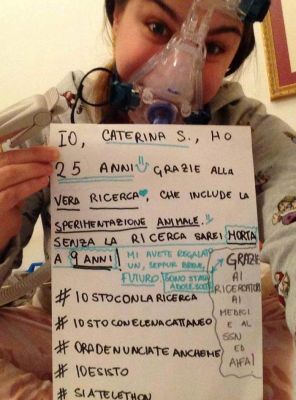 IO, CATERINA S., HO
25 ANNI GRAZIE ALLA
VERA RICERCA, CHE INCLUDE LA
SPERIMENTAZIONE ANIMALE.
SENZA LA RICERCA SAREI MORTA
A 9 ANNI!
MI AVETE REGALATO
UN, SEPPUR BREVE,
FUTURO
(SONO STATA
ADOLESCENTE)
GRAZIE
AI
RICERCATORI
AI
MEDICI
E AL
SSN
ED
AIFA!
#IOSTOCONLARICERCA
#IOSTOCONELENACATTANEO
#ORADENUNCIATEANCHEME
#IOESISTO
#SIATELETHON